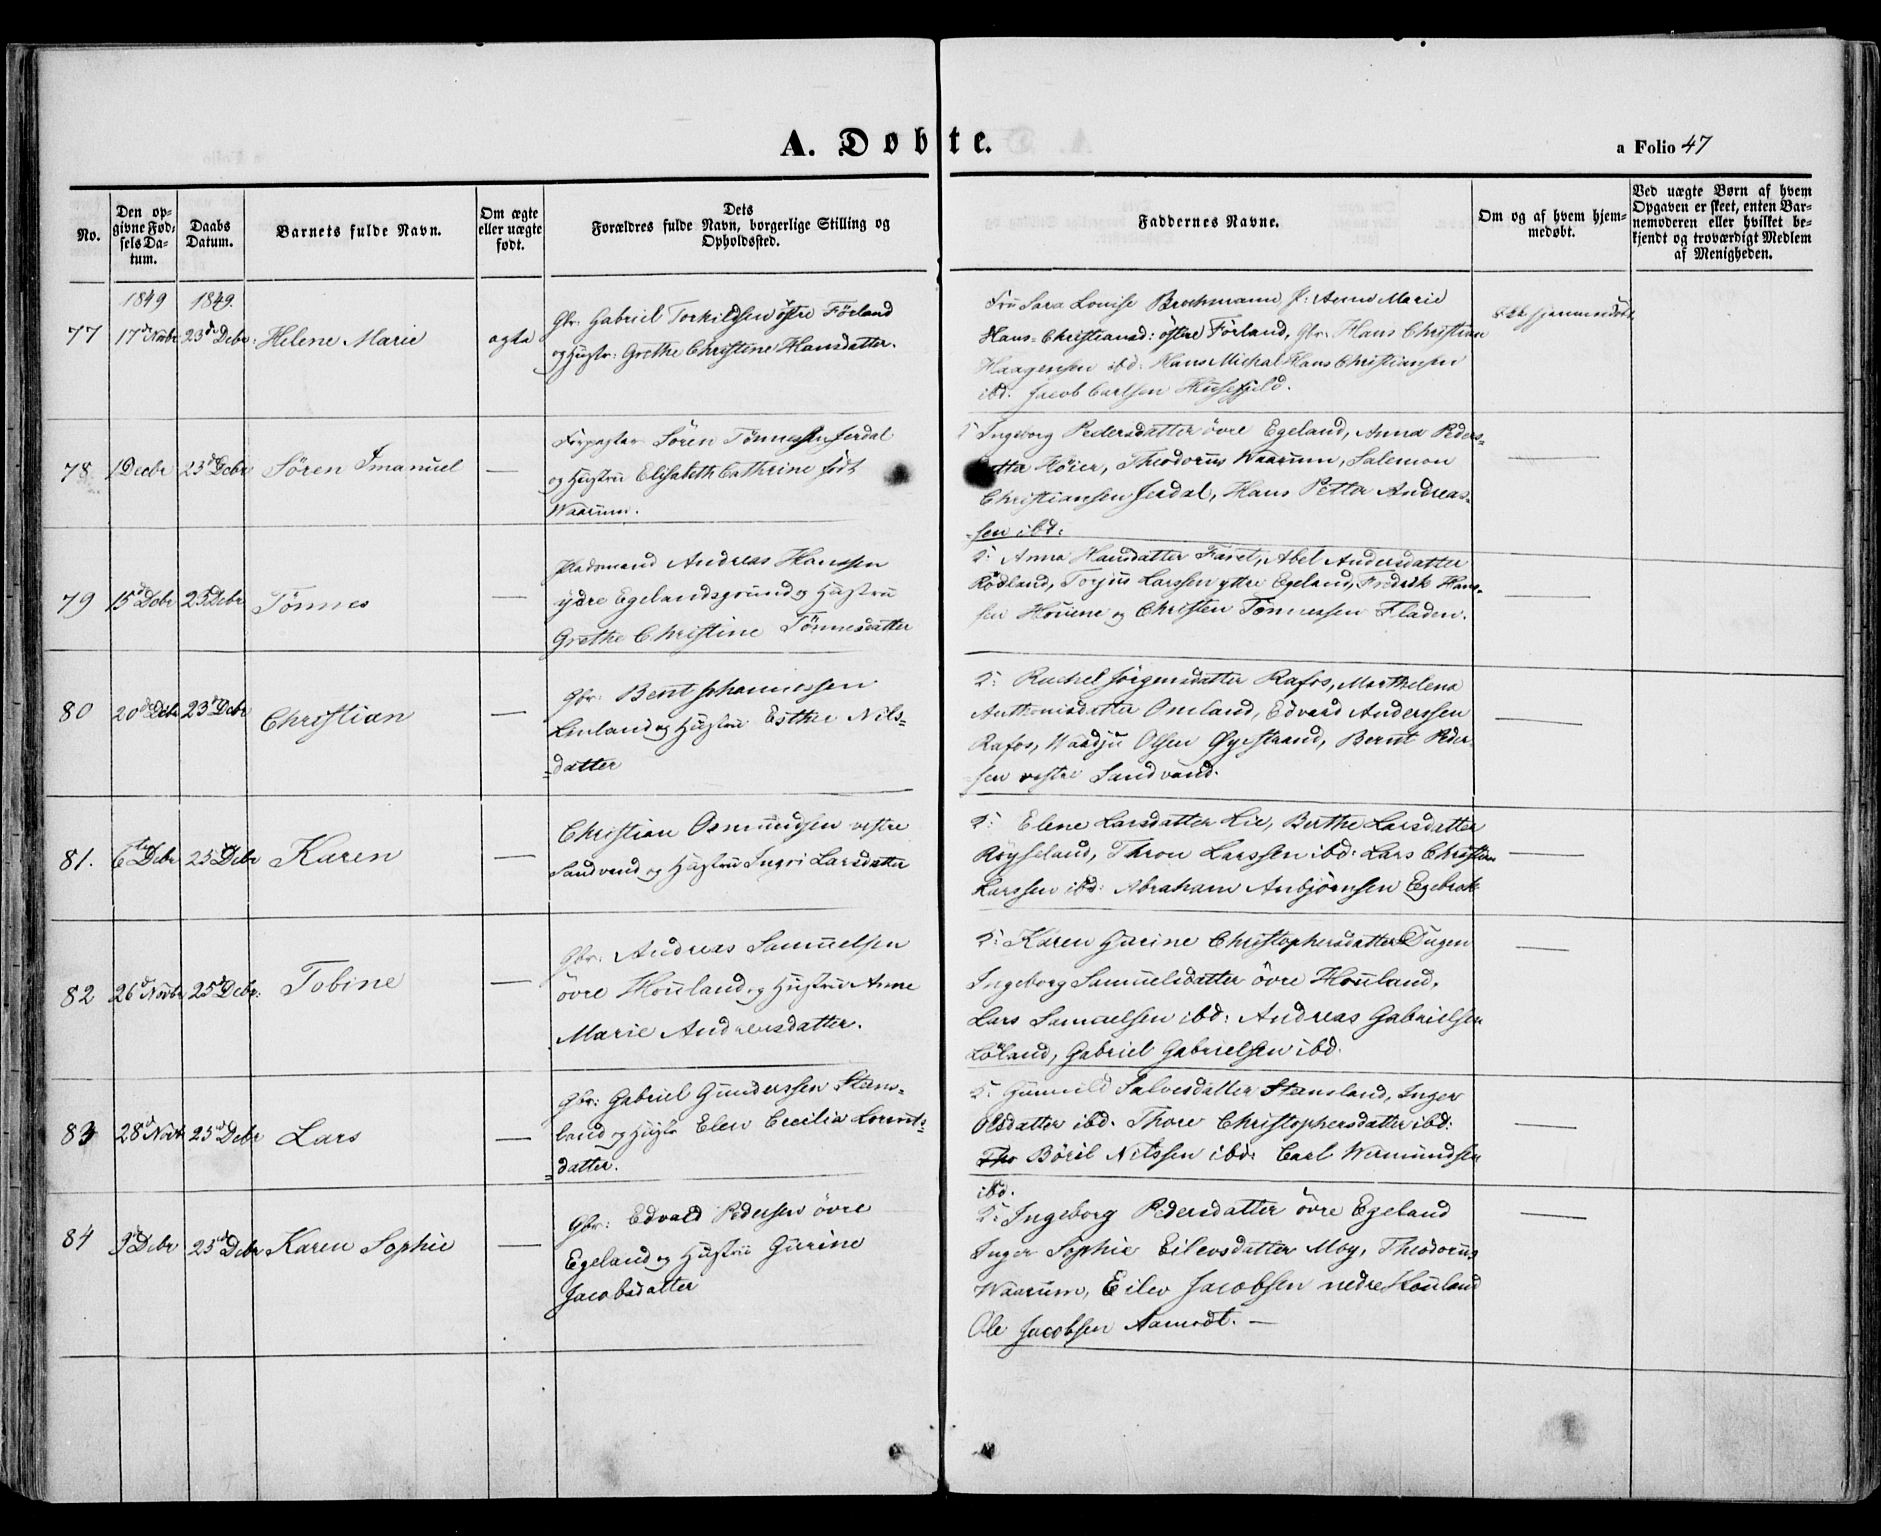 A. Døbte.
a Folio 47
No.
Den op-
givne Fød-
sels Da-
tum.
Daabs
Datum.
Barnets fulde Navn.
Om ægte
eller uægte
født.
Dets
Forældres fulde Navn, borgerlige Stilling og
Opholdssted.
Faddernes Navne.
Om og af hvem hjem-
medøbt.
Ved uægte Børn af hvem
Opgaven er skeet, enten Bar-
nemoderen eller hvilket be-
kjendt og troværdigt Medlem
af Menigheden.
1849 1849.
77 17de Novbr 23de Debr. Helene Marie ægte
Gbr. Gabriel Torkildsen østre Förland
og Hustr: Grethe Christine Hansdatter.
Fru Sara Louise Brochmann, P: Anne Marie
Hans-Christiansd: østre Förland, Gbr. Hans Christian
Haagensen ibd. Hans Michal Hans Christiansen
ibd. Jacob Carlsen Husefjeld.
Ikke hjemmedöbt
78 1 Decbr 23de Debr Sören Imanuel —
Forpagter Sören Tönnessen Jerdal
og Hustru Elisabeth Cathrine født
Waarum.
Ingeborg Pedersdatter övre Egeland, Anna Peders-
datter Höier, Theodorus Waarum, Salemon
Christiansen Jerdal, Hans Petter Andreas-
sen ibd:
—
79 15de Debr 23 Debr Tönnes —
Pladsmand Andreas Hanssen
ydre Egelandsgrund og Hustru
Grethe Christine Tönnesdatter
D: Anna Hansdatter Faret, Abel Andersdatter
Rödland, Torjus Larssen ytre Egeland, Fredrik Hans-
sen Houene og Christen Tönnessen Fladen.
—
80 20de Debr 23de Debr Christian —
Gbr: Bent Johannessen
Linland og Hustru Esther Nils-
datter
D: Rachel Jörgensdatter Rafos, Marthelena
Anthonisdatter Omland, Edvard Anderssen
Rafos, Olsen Øyestrand, Bernt Peder-
sen vestre Sandvand.
—
81. 6te Debr 25de Debr Karen —
Christian Osmundsen vestre
Sandvand og Hustru Ingri Larsdatter
D: Elene Larsdatter Lie, Berthe Larsdatter
Röyseland, Thron Larssen ibd: Lars Christian
Larssen ibd: Abraham Anbjörnsen Egebrok
—
82 26de Novbr 25de Debr. Tobine —
Gbr. Andreas Samuelsen
övre Houland og Hustru Anne
Marie Andreasdatter.
D: Karen Gurine Christophersdatter Dugen
Ingeborg Samuelsdatter övre Houland,
Lars Samuelsen ibd: Andreas Gabrielsen
Löland, Gabriel Gabrielsen ibd.
—
83 28de Novbr 25de Debr Lars —
Gbr: Gabriel Gunderssen Stens-
land og Hustr Elen Cecilia Lorents-
datter.
D: Gunvild Salvesdatter Stensland, Inger
Olsdatter ibd. Thore Christophersdatter ibd:
Tho Böril Nilssen ibd: Carl Wermundsen
ibd.
—
84 9de Debr 25de Debr Karen Sophie —
Gbr: Edvard Pedersen övre
Egeland og Hustru Gurine
Jacobsdatter
D: Ingeborg Pedersdatter övre Egeland
Inger Sophie Eilevsdatter Moy, Theodorus
Waarum, Eilev Jacobsen nedre Houland
Ole Jacobsen Aamodt. —
—